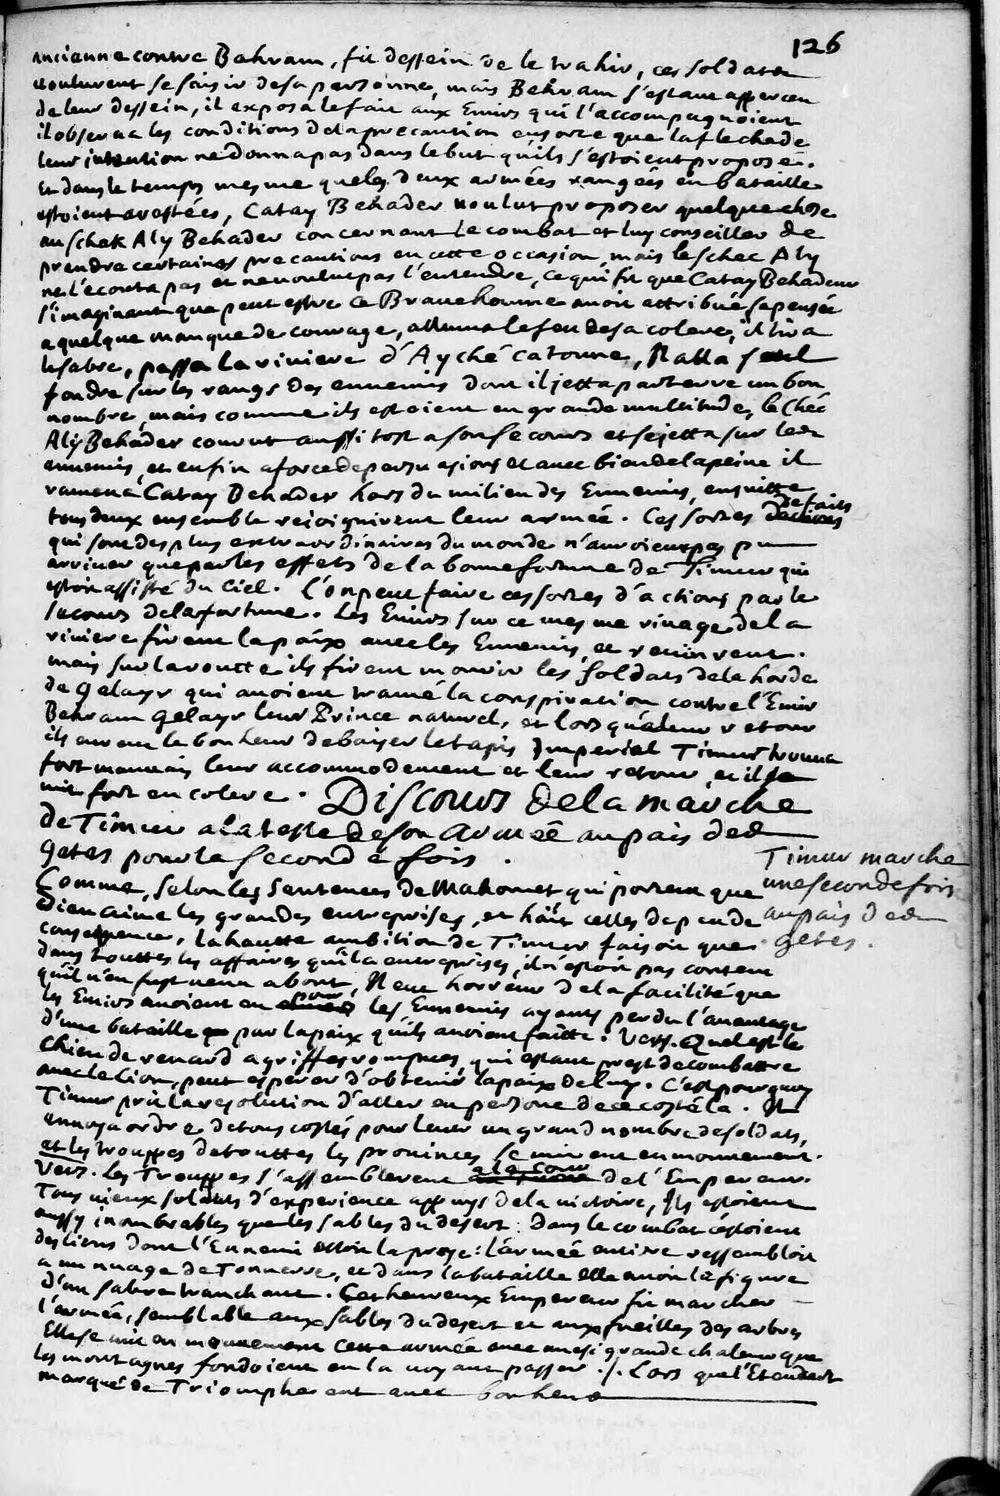 126
ancienne contre Behram, fit dessein de le trahir, ces soldats
voulurent se saisir de sa personne, mais Behram s'estant apperceu
de leur dessein, il exposa le fait aux Emirs qui l'accompagnoient
il observa les conditions de la precaution en sorte que la fleche de
leur intention ne donna pas dans le but qu'ils s'estoient proposé.
Et dans le temps mesme que les deux armées rangées en bataille
estoient arestées, Catay Behader voulut proposer quelque chose
au Schek Aly Behader concernant le combat et luy conseiller de
prendre certaines precautions en cette occasion, mais le schec Aly
ne l'écouta pas et ne voulut pas l'entendre, ce qui fit que Catay Behadeur
s'imaginant que peut estre ce Brave homme avoit attribué sa pensée
a quelque manque de courage, alluma le feu de sa colere, il tira
le sabre, passa la riviere d'Ayché catonne, Il alla seul
fondre sur les rangs des ennemis dont il jetta par terre un bon
nombre, mais comme ils estoient en grande multitude, le Chéc
Aly Behader courut aussi tost a son secours et se jetta sur les
ennemis, et enfin a force de persuasions et avec bien de la peine il
ramena Catay Behader hors du milieu des Ennemis, en suitte
tous deux ensemble rejoignirent leur armée. Ces sortes de faits
qui sont des plus extraordinaires du monde n'auroient pas pu
arriver que par les effets de la bonne fortune de Timur qui
estoit assisté du Ciel. L'on peut faire ces sortes d'actions par le
secours de la fortune. Les Emirs sur ce mesme rivage de la
riviere firent la paix avec les Ennemis, et revinrent.
mais sur la routte ils firent mourir les soldats de la horde
de Gelayr qui avoient tramé la conspiration contre l'Emir
Behram Gelayr leur Prince naturel, et lors qu'a leur retour
ils eurent le bonheur de baiser le tapis Imperial Timur trouva
fort mauvais leur accommodement et leur retour, et il se
mit fort en colere. Discours de la marche
de Timur a la teste de son Armée au païs des
Getes pour la seconde fois.
Timur marche
une seconde fois
au païs des
Getes.
Comme, selon les Sentences de Mahomet qui portent que
Dieu aime les grandes entreprises, et hait celles de peu de
consequence, la hautte ambition de Timur faisoit que
dans touttes les affaires qu'il a entreprises, il n'estoit pas content
qu'il n'en fust venu a bout, Il eut horreur de la facilité que
les Emirs avoient eu pour les Ennemis ayants perdu l'avantage
d'une bataille par la paix qu'ils avoient faitte. Vers. Quel est le
chien de renard a griffes rompues, qui estant prest de combattre
avec le Lion, peut esperer d'obtenir la paix de luy. C'est pourquoy
Timur prit la resolution d'aller en persone de ce costé la. Il
envoya ordre de tous costés pour lever un grand nombre de soldats,
et les trouppes de touttes les provinces se mirent en mouvement.
Vers. Les Trouppes s'assemblerent a la Cour de l'Empereur.
Tous vieux soldats d'experience appuys de la victoire, Ils estoient
aussy inombrables que les sables du desert: Dans le combat c'estoient
des lions dont l'Ennemi estoit la proye: l'armée entiere ressembloit
a un nuage de Tonnerre, et dans la bataille elle avoit la figure
d'un sabre tranchant. Cet heureux Empereur fit marcher
l'armée, semblable aux sables du desert et aux fueilles des arbres
Elle se mit en mouvement cette armée avec une si grande chaleur que
les montagnes fondoient en la voyant passer ./. Lors que l'Etendart
marqué de Triomphe eut avec bonheur